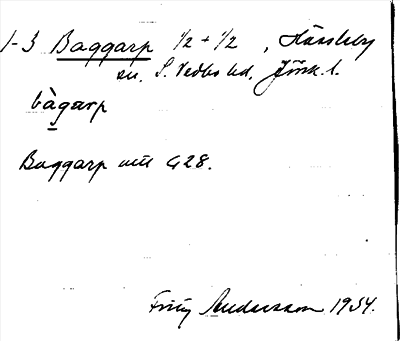 1-3 Baggarp 1/2 + 1/2, Hässleby
sn. S. Vedbo hd, Jönk. l.
bàgarp
Baggarp mtl 428.
Fritz Andersson 1934.